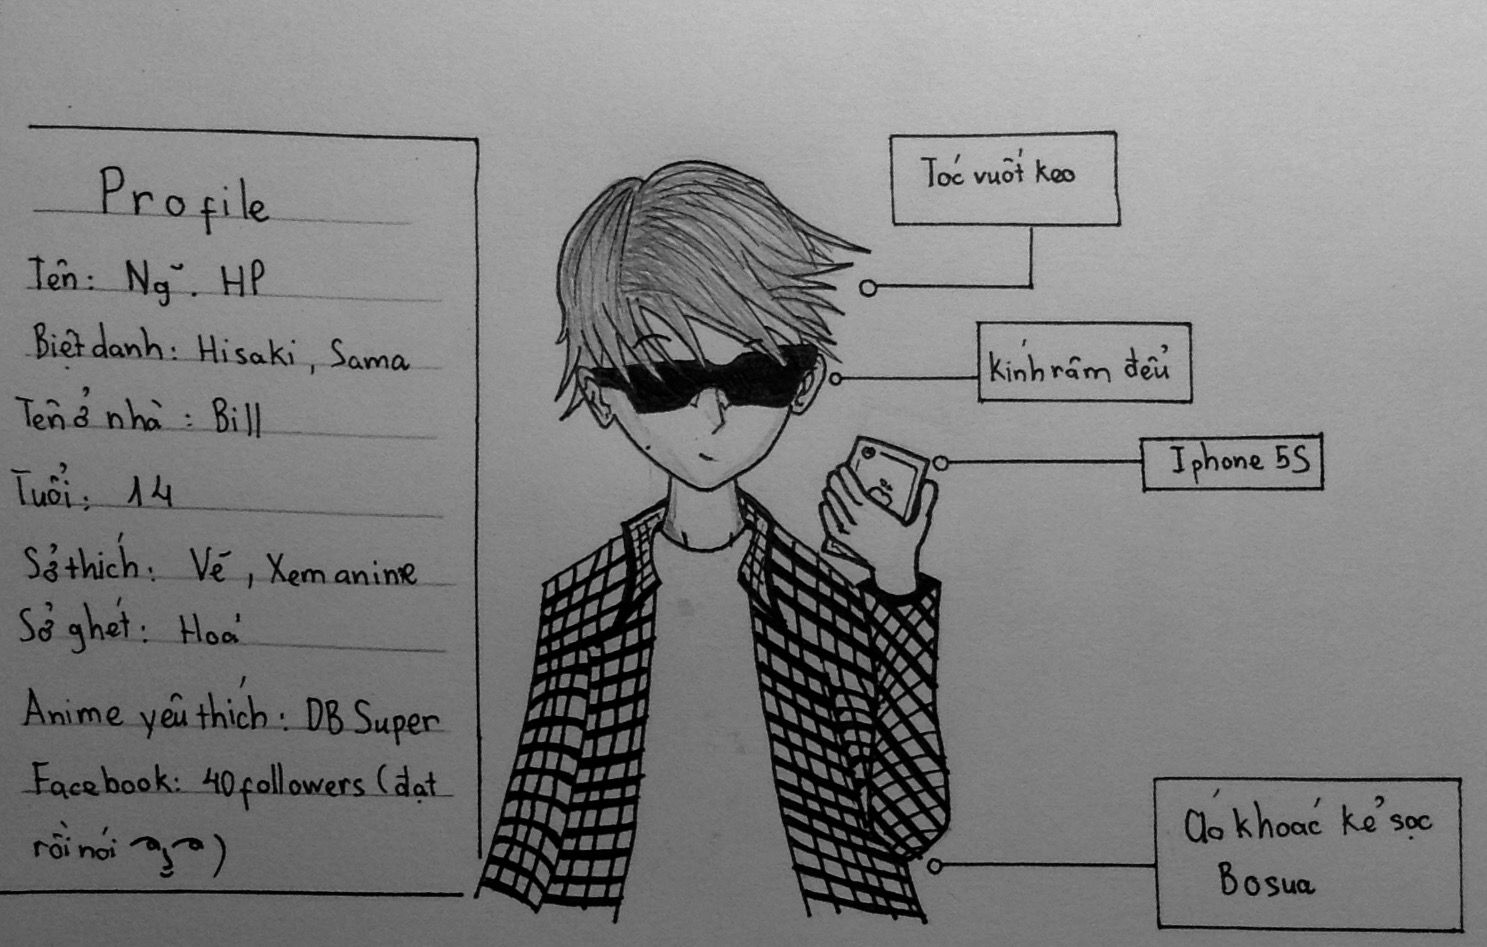 Profile
Tên: Ng~. HP
Biệt danh: Hisaki, Sama
Tên ở nhà: Bill
Tuổi: 14
Sở thích: Vẽ, Xem anime
Sở ghét: Hoá
Anime yêu thích: DB Super
Facebook: 40 followers (đạt
rồi nói )
Tóc vuốt keo
kính râm đểu
Iphone 5S
Áo khoác kẻ sọc
Bosua